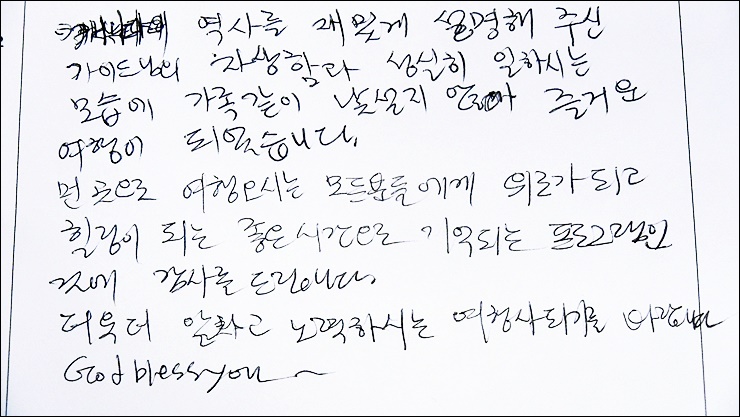 역사를 재밌게 설명해 주신
가이드님의 자상함과 성실히 일하시는
모습에 가족같이 낯설지 않아 즐거운
여행이 되었습니다.
먼 곳으로 여행오시는 모든분들에게 위로가 되고
힐링이 되는 좋은 시간으로 기억되는 프로그램인
것에 감사를 드립니다.
더욱더 알차고 노력하시는 여행사되기를 바랍니다
God bless you ~